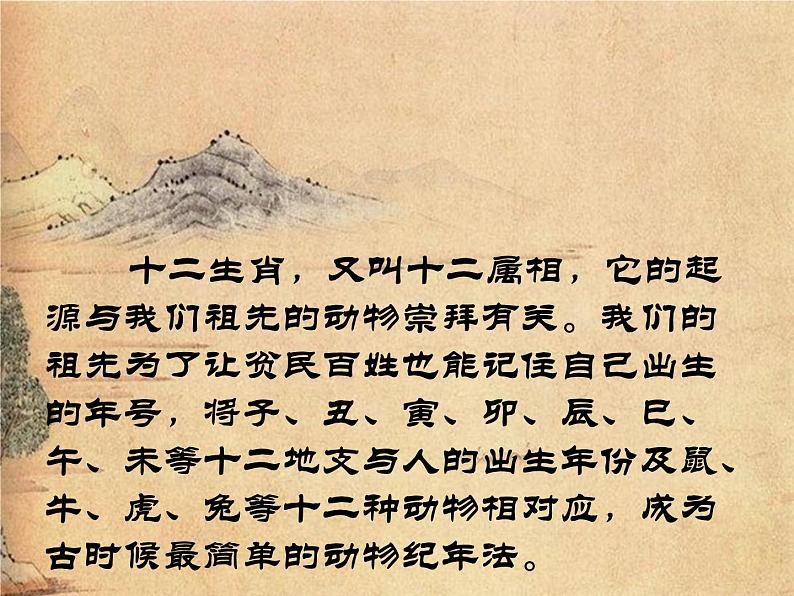 十二生肖，又叫十二属相，它的起
源与我们祖先的动物崇拜有关。我们的
祖先为了让贫民百姓也能记住自己出生
的年号，将子、丑、寅、卯、辰、巳、
午、未等十二地支与人的出生年份及鼠、
牛、虎、兔等十二种动物相对应，成为
古时候最简单的动物纪年法。